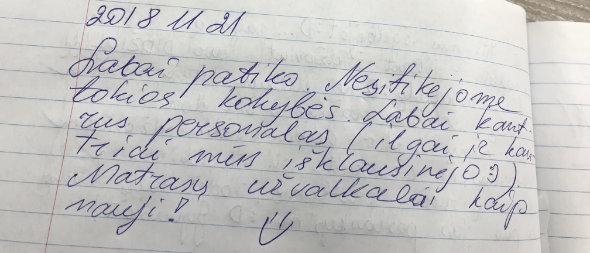 2018 11 21
Labai patiko. Nesitikėjome
tokios kokybės. Labai kant-
rus personalas (ilgai ir kan-
triai mus išklausinėjo :))
Matrasų užvalkalai kaip
nauji! :)